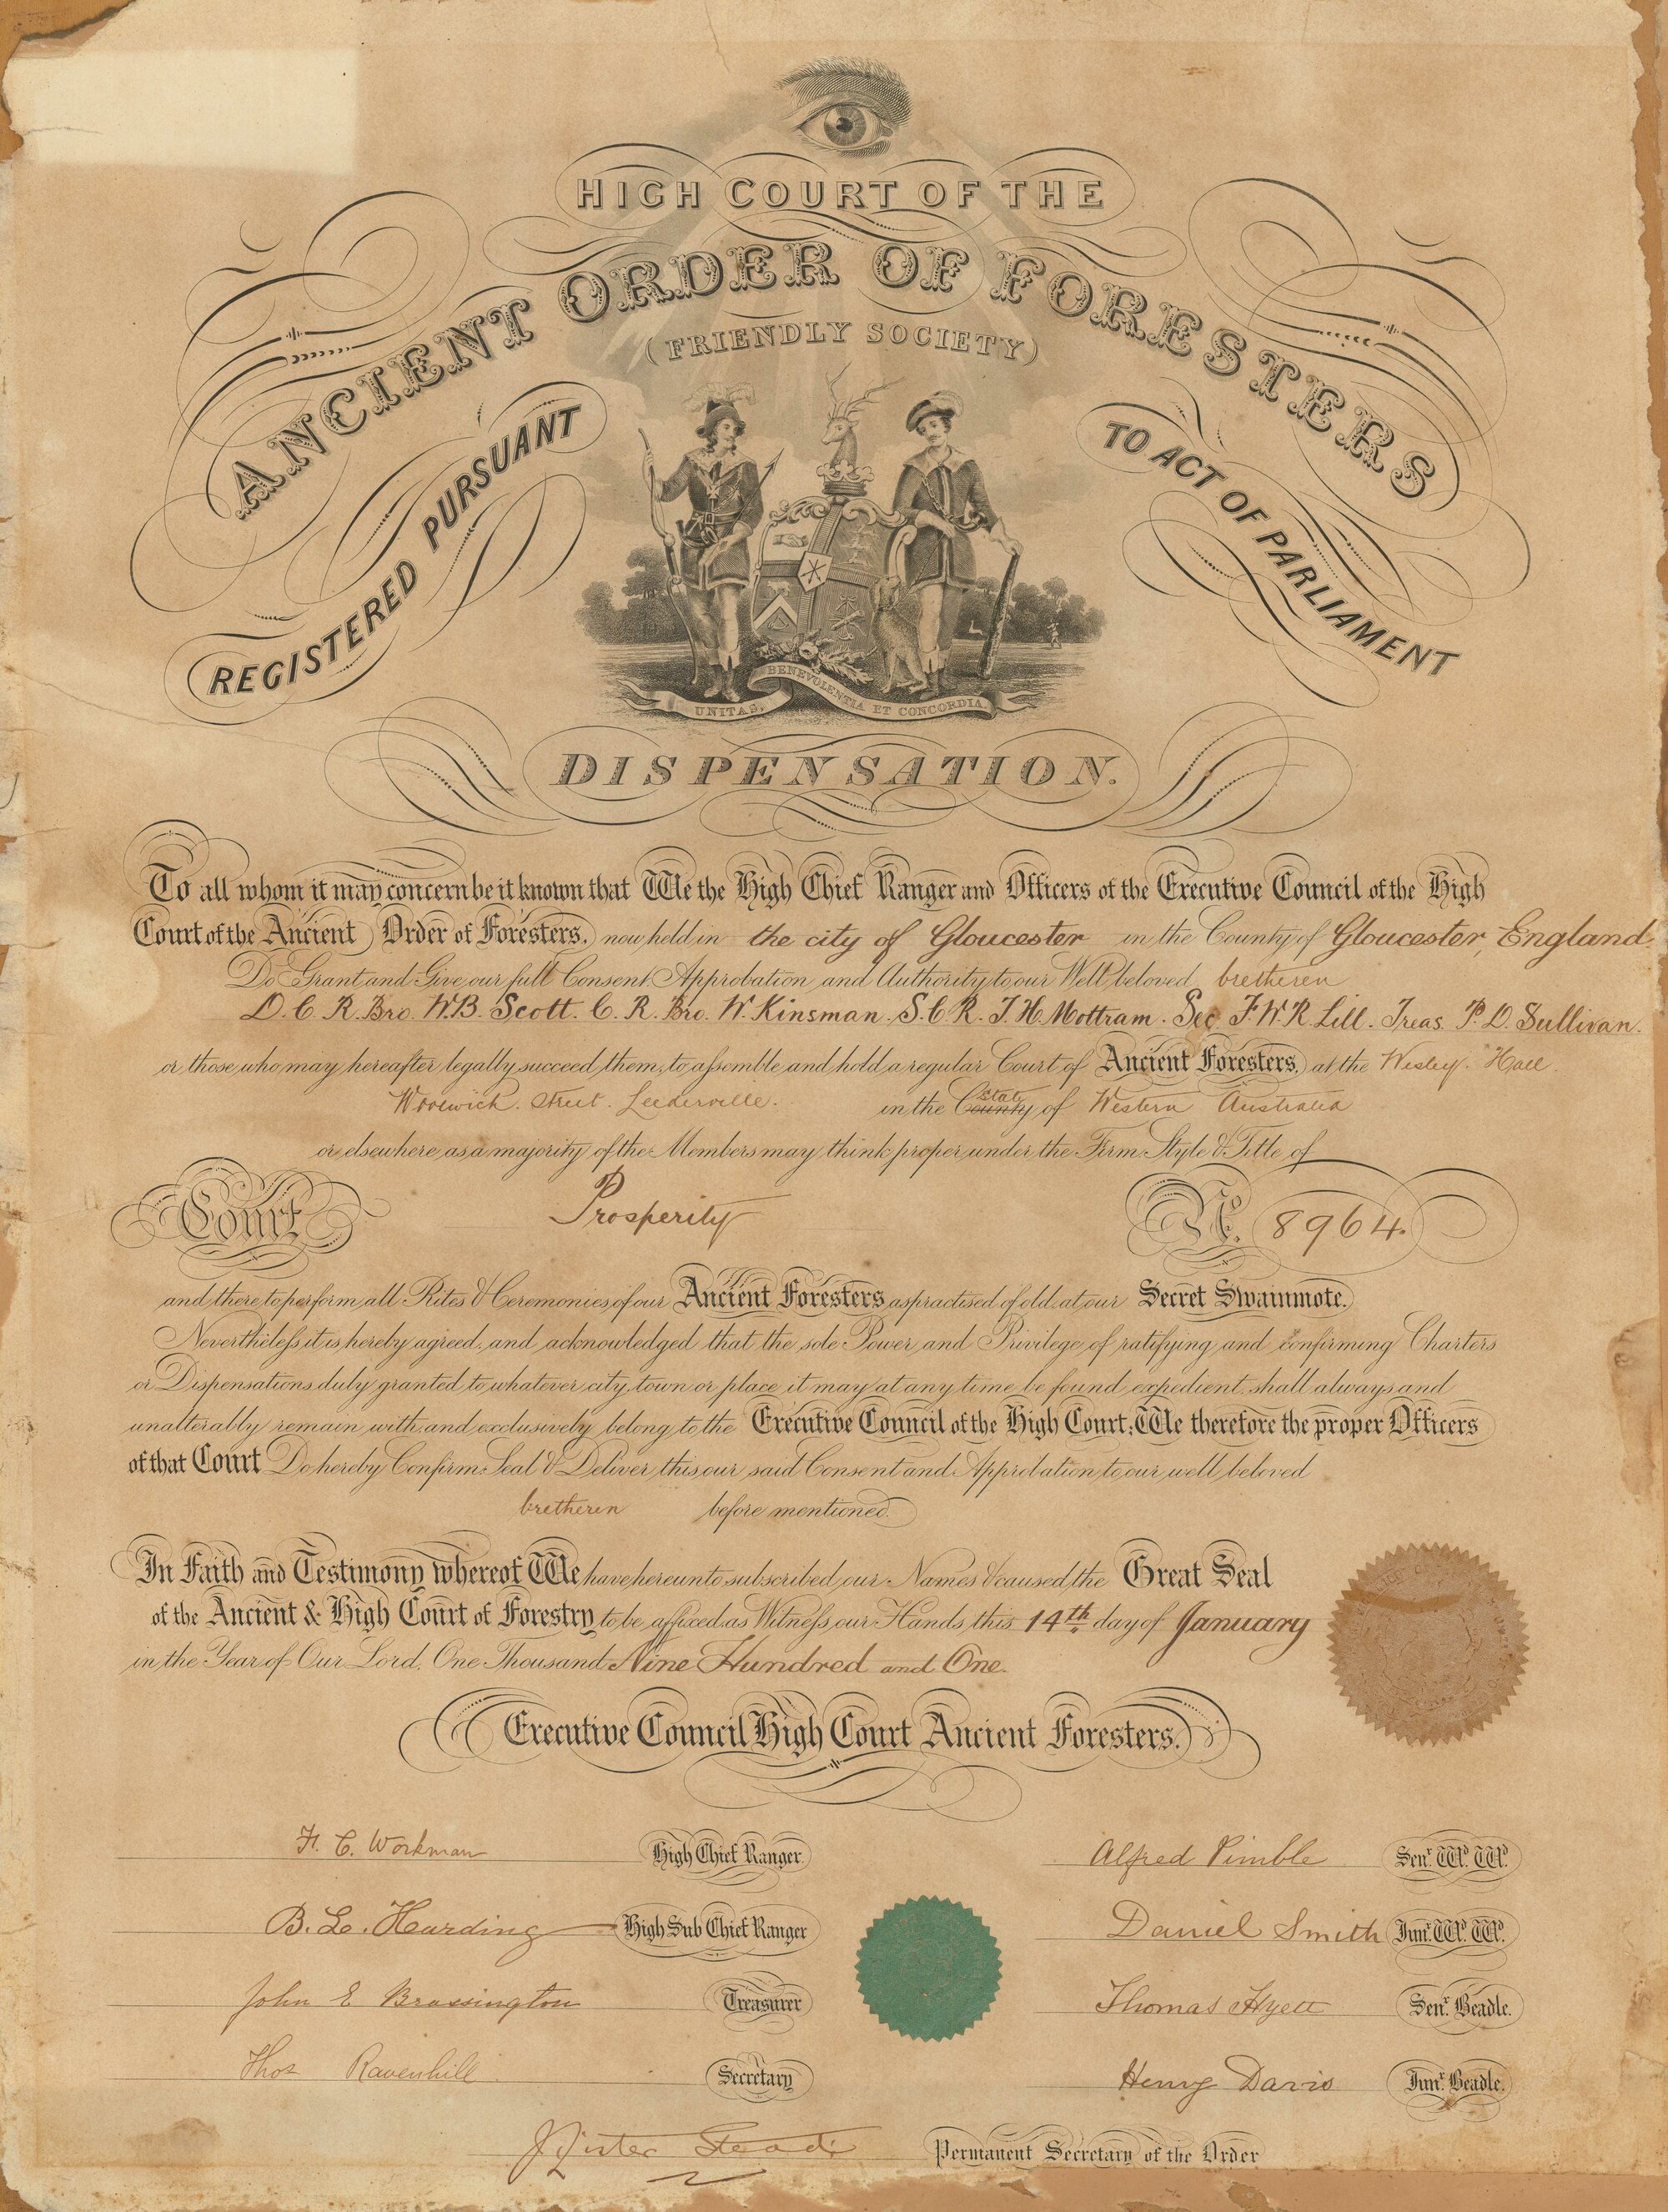 HIGH COURT OF THE
ANCIENT ORDER OF FORESTERS
(FRIENDLY SOCIETY)
REGISTERED PURSUANT
TO ACT OF PARLIAMENT
UNITAS, BENEVOLENTIA ET CONCORDIA.
DISPENSATION.
To all whom it may concern be it known that We the High Chief Ranger and Officers of the Executive Council of the High
Court of the Ancient Order of Foresters, now held in the city of Gloucester in the County of Gloucester, England
Do Grant and Give our full Consent Approbation and Authority to our Well beloved bretheren
D. C. R. Bro. W.B. Scott. C. R. Bro. W. Kinsman. S. C. R. J. H. Mottram. Sec. F. W. R. Lill. Treas. P. D. Sullivan.
or those who may hereafter legally succeed them, to assemble and hold a regular Court of Ancient Foresters, at the Wesley. Hall.
Woolwich. Street. Leederville. in the County State of Western Australia
or elsewhere, as a majority of the Members may think proper under the Firm Style & Title of
Court Prosperity No. 8964.
and there to perform all Rites & Ceremonies of our Ancient Foresters as practised of old at our Secret Swainmote.
Nevertheless it is hereby agreed, and acknowledged that the sole Power and Privilege of ratifying and confirming Charters
or Dispensations duly granted to whatever city, town or place it may at any time be found expedient, shall always and
unalterably remain with and exclusively belong to the Executive Council of the High Court; We therefore the proper Officers
of that Court Do hereby Confirm Seal & Deliver this our said Consent and Approbation to our well beloved
bretheren before mentioned.
In Faith and Testimony whereof We have hereunto subscribed our Names & caused the Great Seal
of the Ancient & High Court of Forestry, to be affixed as Witness our Hands, this 14th day of January
in the Year of Our Lord, One Thousand Nine Hundred and One.
Executive Council High Court Ancient Foresters.
F. C. Workman High Chief Ranger.
Alfred Pimble Senr. Wd. Wd.
B. L. Harding High Sub Chief Ranger
Daniel Smith Junr. Wd. Wd.
John E Brassington Treasurer
Thomas Hyett Senr. Beadle.
Thos Ravenhill. Secretary
Henry Davis Junr. Beadle.
J Lister Stead Permanent Secretary of the Order